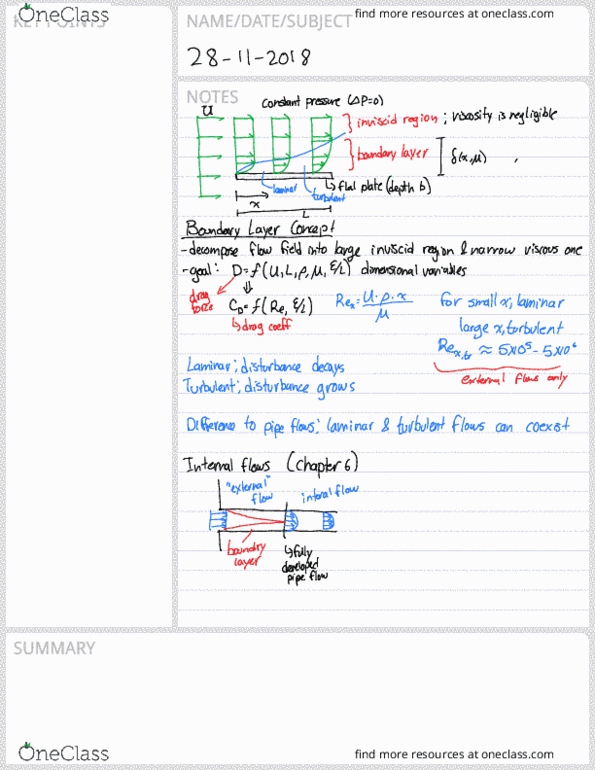 OneClass
find more resources at oneclass.com
KEY POINTS
NAME/DATE/SUBJECT
28-11-2018
NOTES
Constant pressure (ΔP=0)
U
inviscid region ; viscosity is negligible
boundary layer
δ(x,μ)
laminar
turbulent
flat plate (depth b)
x
L
Boundary Layer Concept
-decompose flow field into large inviscid region & narrow viscous one
-goal: D=f(U,L,ρ,μ,ε/L) dimensional variables
⇓
drag force
C_D=f(Re, ε/L)
↳drag coeff
Re_x = U·ρ·x / μ
for small x, laminar
large x, turbulent
Re_x,tr ≈ 5x10^5 - 5x10^6
external flows only
Laminar; disturbance decays
Turbulent; disturbance grows
Difference to pipe flows: laminar & turbulent flows can coexist
Internal flows (Chapter 6)
"external" flow
internal flow
boundry layer
↳fully developed pipe flow
SUMMARY
OneClass
find more resources at oneclass.com